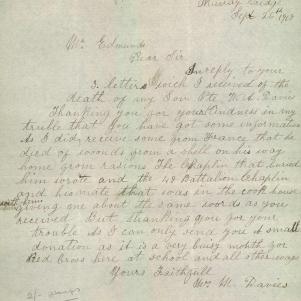 Murray Bridge
Sept 26th 1918
Mr Edmunds
Dear Sir
In reply to your
3 letters wich I receved of the
death of my Son Pte W. A. Davis
Thanking you for your kindness in my
truble that you have got some informatin
As I did receive some from France that he
died of wounds from a shell on his way
home from rasions The Chaplin that buried
him wrote and the 48 Battalion Chaplin
and his mate that was in the cook house
with him
giving me about the same words as you
received. But thanking you for your
trouble As I can only send you a small
donation as it is a very busy month for
Red Cross here at school and all other ways
Yours Faithfull
Mrs M. Davies
2/-